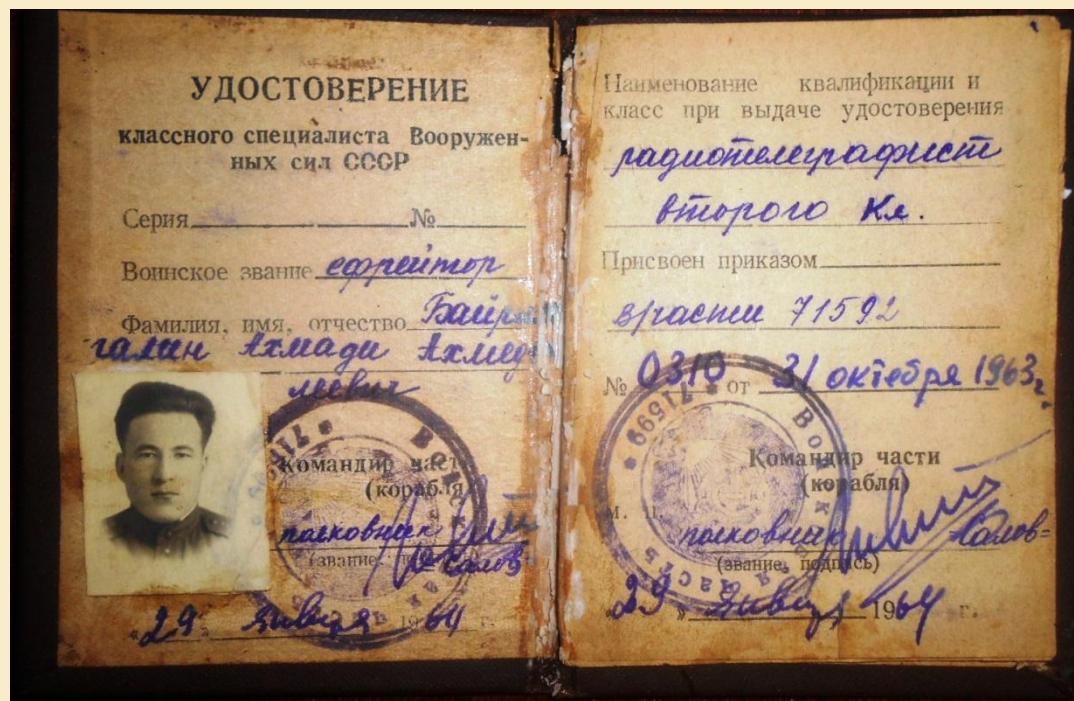 УДОСТОВЕРЕНИЕ
классного специалиста Вооружен-
ных сил СССР
Серия № 
Воинское звание ефрейтор
Фамилия, имя, отчество
галин Ахмади
Командир части
(корабля
полковник
(звание,
"29" января 1964 г.
Наименование квалификации и
класс при выдаче удостоверения
радиотелеграфист
второго кл.
Присвоен приказом
в/части 71592
№ 0310 от 31 октября 1963 г.
Командир части
(корабля)
м. п.
полковник
(звание, подпись)
"29" января 1964 г.